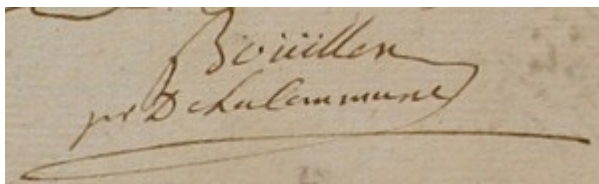 Boüiller
pr D de la Commune